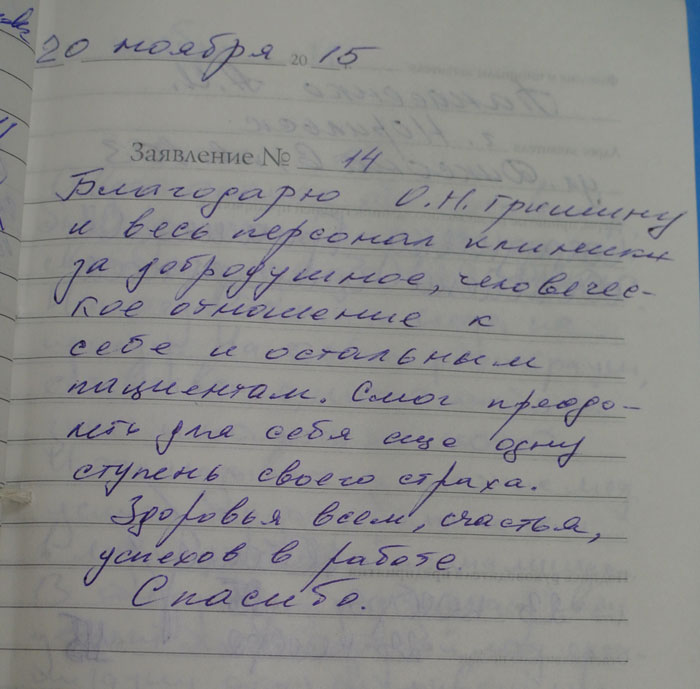 20 ноября 2015
Заявление № 14
Благодарю О.Н. Гришину
и весь персонал клиники
за добродушное, человечес-
кое отношение к
себе и остальным
пациентам. Смог преодо-
леть для себя еще одну
ступень своего страха.
Здоровья всем, счастья,
успехов в работе.
Спасибо.